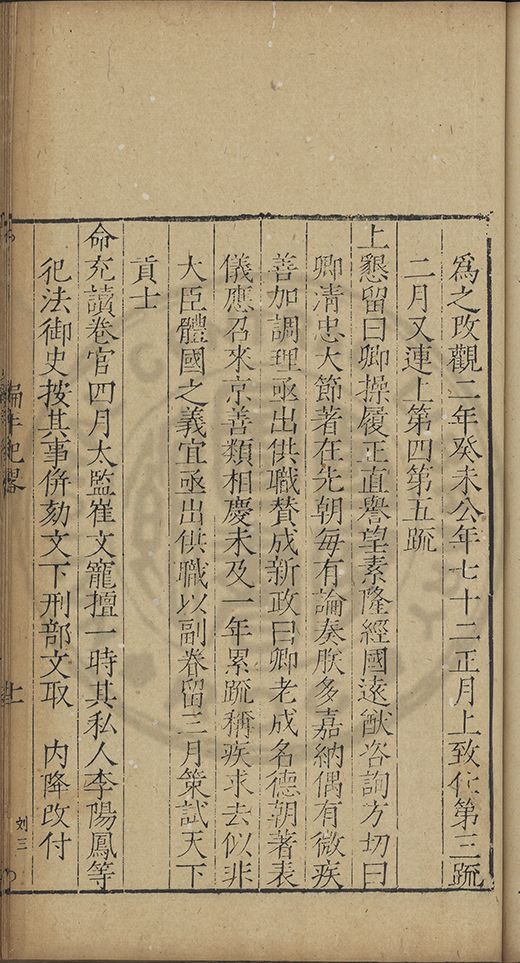 爲之改觀二年癸未公年七十二正月上致仕第三疏
二月又連上第四第五疏
上懇留曰卿操履正直譽望素隆經國遠猷咨詢方切曰
卿清忠大節著在先朝每有論奏朕多嘉納偶有微疾
善加調理亟出供職贊成新政曰卿老成名德朝著表
儀應召來京善類相慶未及一年累疏稱疾求去似非
大臣體國之義宜亟出供職以副眷留三月策試天下
貢士
命充讀卷官四月太監崔文寵擅一時其私人李陽鳳等
犯法御史按其事併劾文下刑部文取　內降改付
編年紀畧
上
刘三